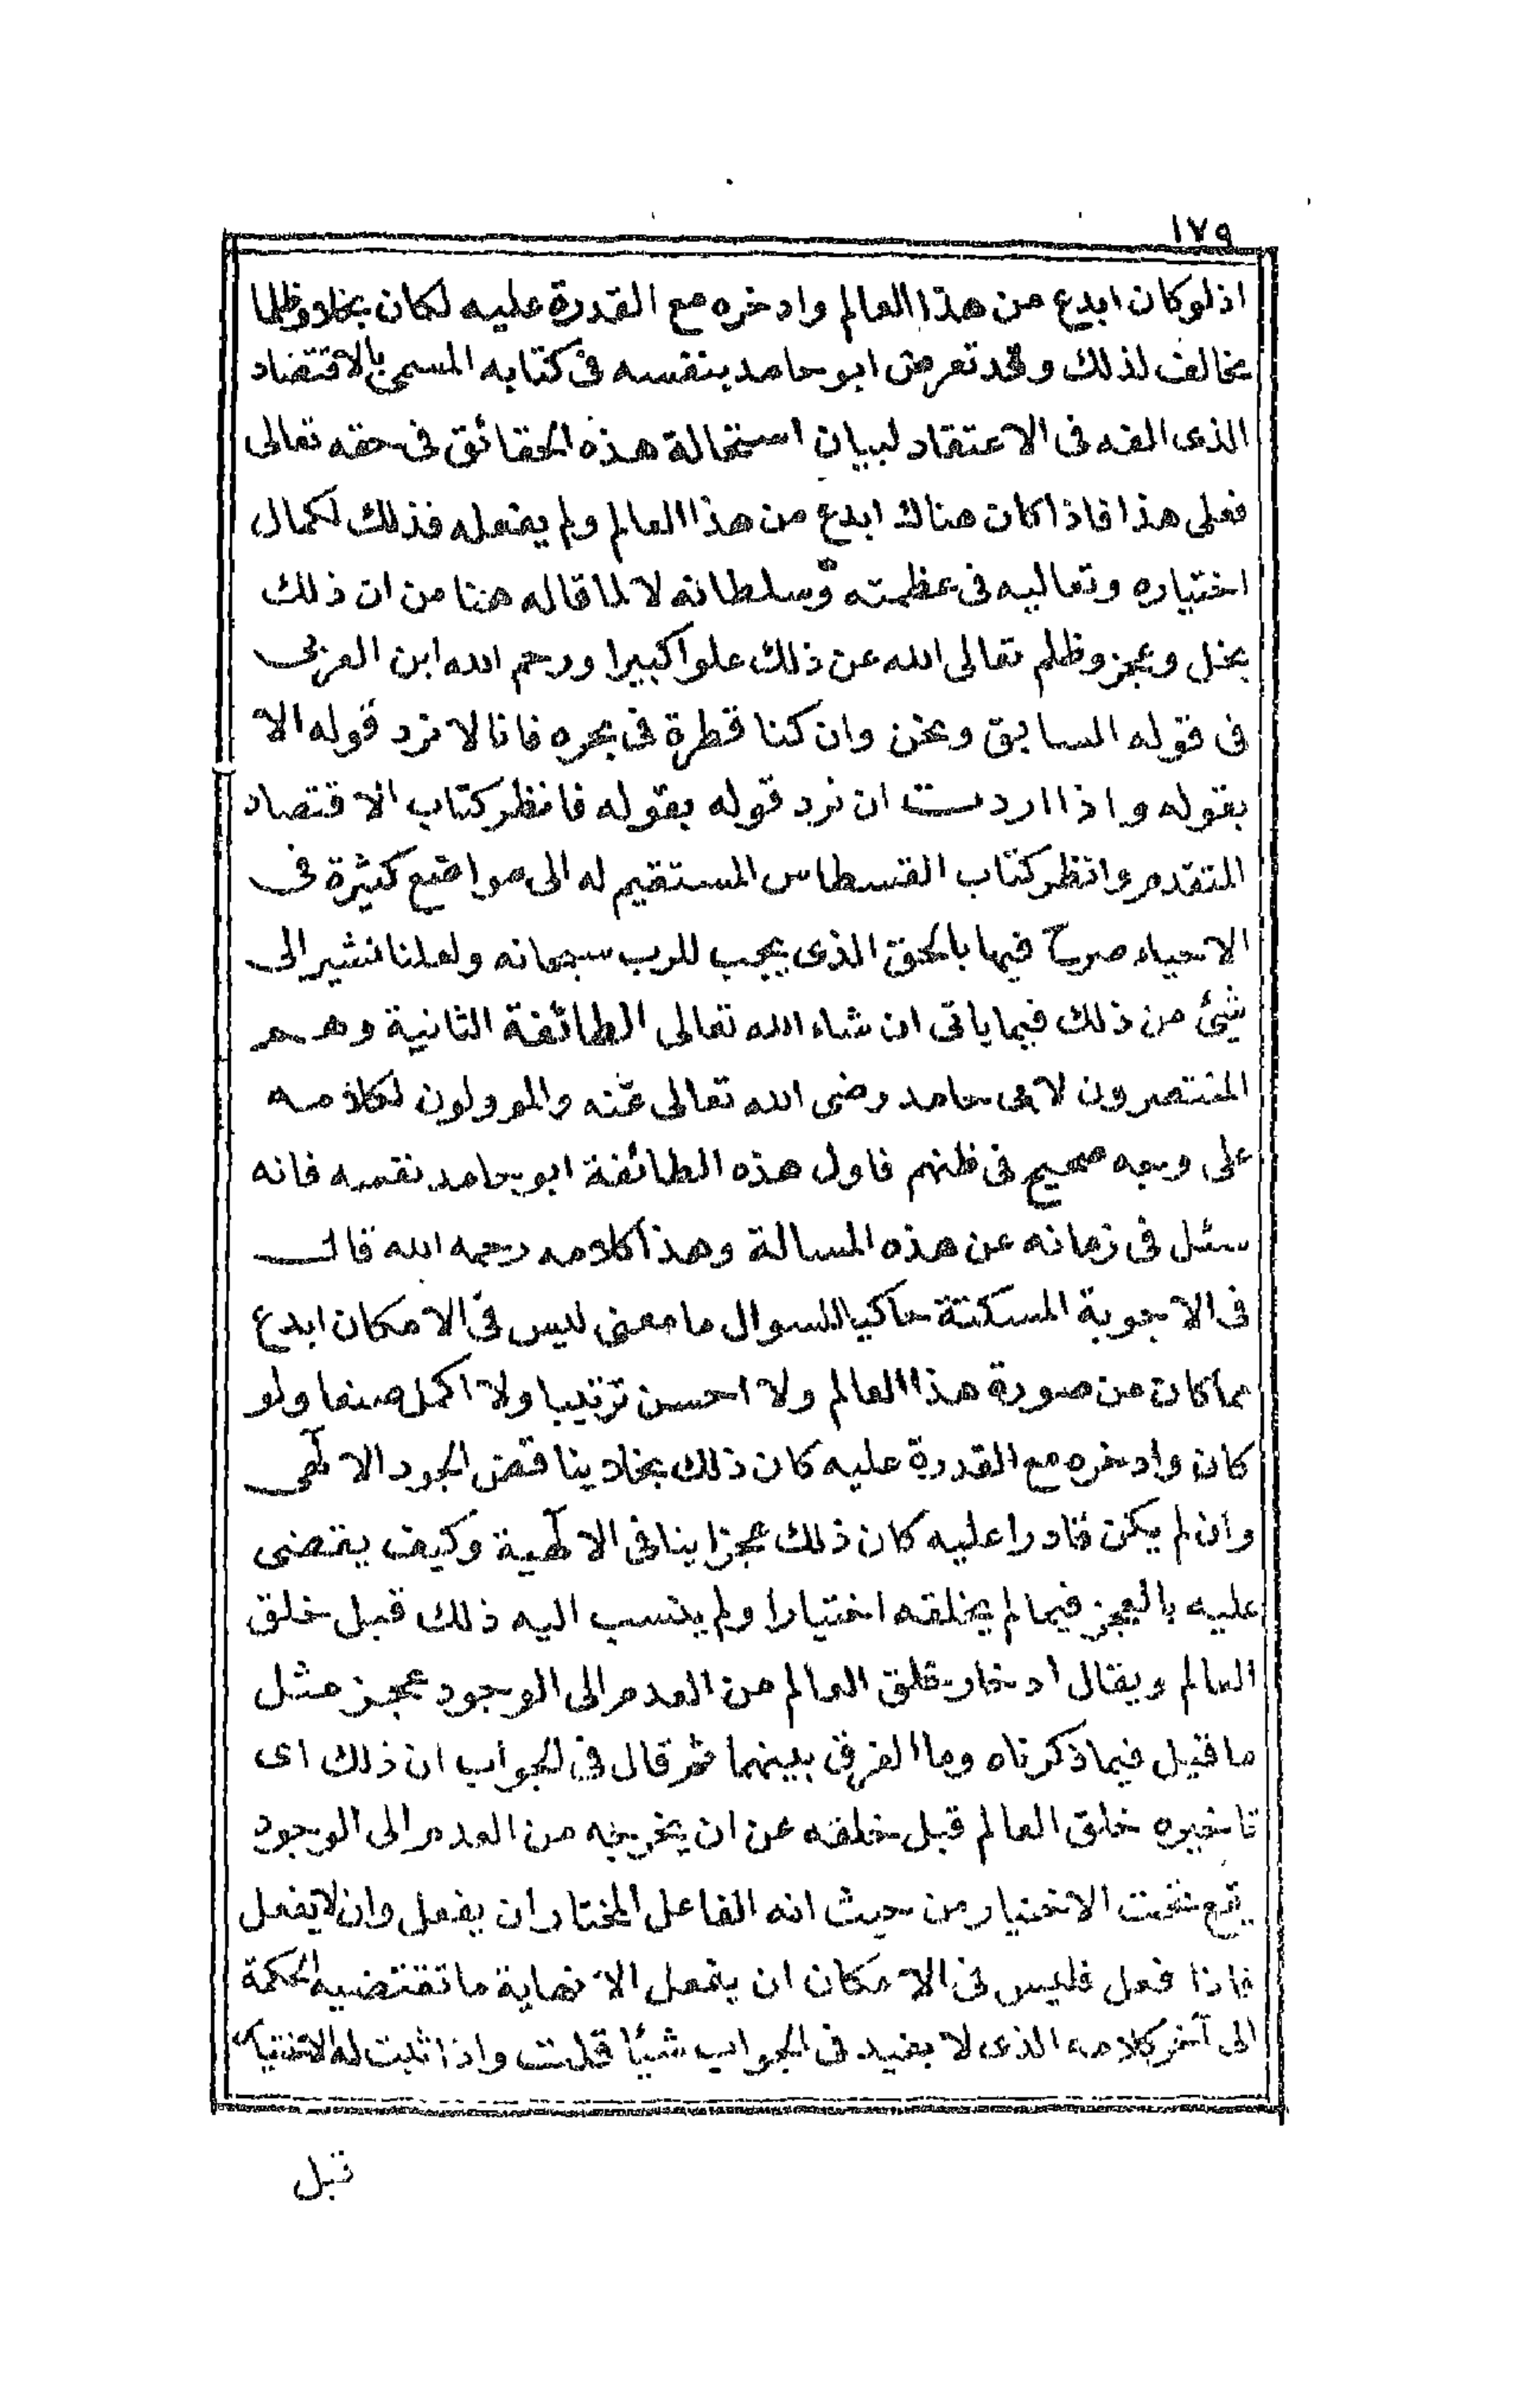 ١٧٩
اذ لو كان ابدع من هذا العالم وادخره مع القدرة عليه لكان بخلا وظلما
مخالف لذلك وقد تعرض ابو حامد بنفسه فى كتابه المسمى بالاقتضاد
الذى الفه فى الاعتقاد لبيان استحالة هذه الحقائق فى حقه تعالى
فعلى هذا فاذا كان هناك ابدع من هذا العالم ولم يفعله فذلك لكمال
اختياره وتعاليه فى عظمته وسلطانه لا لما قاله هنا من ان ذلك
بخل وعجز وظلم تعالى الله عن ذلك علوا كبيرا ورحم الله ابن العربى
فى قوله السابق ونحن وان كنا قطرة فى بحره فانا لا نرد قوله الا
بقوله واذا اردت ان نرد قوله بقوله فانظر كتاب الاقتصاد
المتقدم وانظر كتاب القسطاس المستقيم له الى مواضع كثيرة فى
الاحياء صرح فيها بالحق الذى يجب للرب سبحانه ولعلنا نشير الى
شئ من ذلك فيما ياتى ان شاء الله تعالى الطائفة الثانية وهم
المنتصرون لابى حامد رضى الله تعالى عنه والموولون لكلامه
على وجه صحيح فى ظنهم فاول هذه الطائفة ابو حامد نفسه فانه
سئل فى زمانه عن هذه المسالة وهذا كلامه رحمه الله قال
فى الاجوبة المسكتة حاكيا للسوال ما معنى ليس فى الامكان ابدع
مما كان من صورة هذا العالم ولا احسن ترتيبا ولا اكمل صنعا ولو
كان وادخره مع القدرة عليه كان ذلك بخلا يناقض الجود الالهى
وان لم يكن قادرا عليه كان ذلك عجزا ينافى الالهية وكيف يقتضى
عليه بالعجز فيما لم يخلقه اختيارا ولم ينسب اليه ذلك قبل خلق
العالم ويقال ادخار خلق العالم من العدم الى الوجود عجز مثل
ما قيل فيما ذكرناه وما الفرق بينهما ثم قال فى الجواب ان ذلك اى
تاخيره خلق العالم قبل خلقه عن ان يخرجه من العدم الى الوجود
يقع تحت الاختيار من حيث انه الفاعل المختار ان يفعل وان لا يفعل
فاذا فعل فليس فى الامكان ان يفعل الا نهاية ما تقتضيه الحكمة
الى آخر كلامه الذى لا يفيد فى الجواب شيئا قلت واذا ثبت له الاختيار
قبل